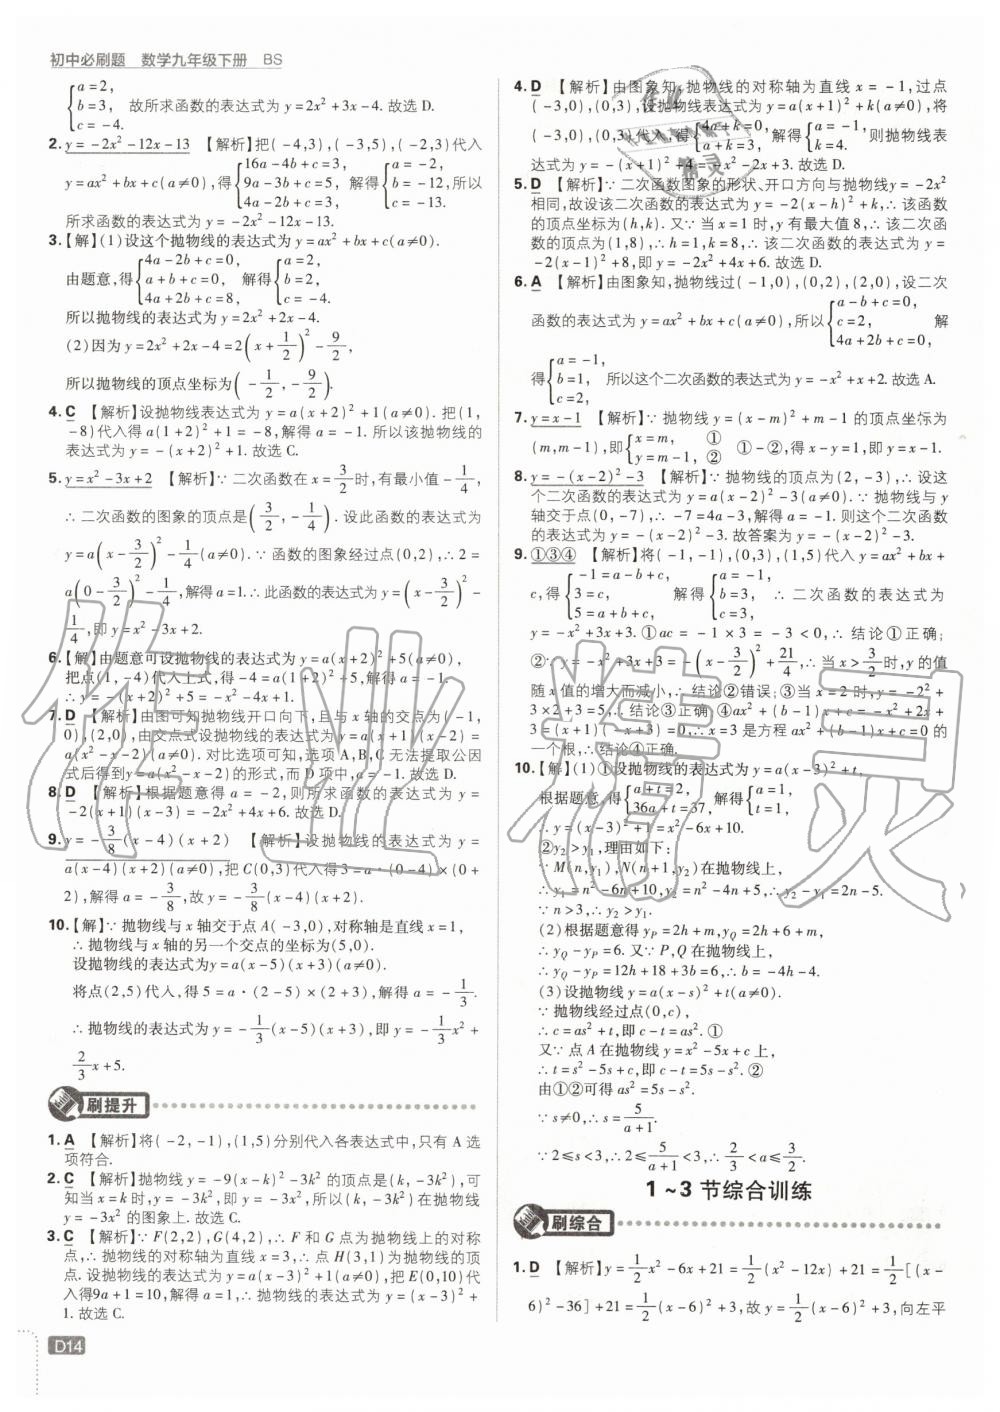 初中必刷题 数学九年级下册 BS
{a=2,
b=3, 故所求函数的表达式为 y=2x²+3x-4. 故选 D.
c=-4.
2. y=-2x²-12x-13 【解析】把(-4,3),(-3,5),(-2,3)代入
y=ax²+bx+c(a≠0),得{16a-4b+c=3, 9a-3b+c=5, 4a-2b+c=3, 解得{a=-2, b=-12, c=-13. 所以
所求函数的表达式为 y=-2x²-12x-13.
3.【解】(1)设这个抛物线的表达式为 y=ax²+bx+c(a≠0).
由题意,得{4a-2b+c=0, a+b+c=0, 4a+2b+c=8, 解得{a=2, b=2, c=-4.
所以抛物线的表达式为 y=2x²+2x-4.
(2)因为 y=2x²+2x-4=2(x+1/2)²-9/2,
所以抛物线的顶点坐标为(-1/2,-9/2).
4. C 【解析】设抛物线表达式为 y=a(x+2)²+1(a≠0). 把(1,
-8)代入得 a(1+2)²+1=-8,解得 a=-1. 所以该抛物线的
表达式为 y=-(x+2)²+1. 故选 C.
5. y=x²-3x+2 【解析】∵ 二次函数在 x=3/2时,有最小值-1/4,
∴ 二次函数的图象的顶点是(3/2,-1/4). 设此函数的表达式为
y=a(x-3/2)²-1/4(a≠0). ∵ 函数的图象经过点(0,2),∴ 2=
a(0-3/2)²-1/4,解得 a=1. ∴ 此函数的表达式为 y=(x-3/2)²-
1/4,即 y=x²-3x+2.
6.【解】由题意可设抛物线的表达式为 y=a(x+2)²+5(a≠0),
把点(1,-4)代入上式,得-4=a(1+2)²+5,解得 a=-1.
∴ y=-(x+2)²+5=-x²-4x+1.
7. D 【解析】由图可知抛物线开口向下,且与 x 轴的交点为(-1,
0),(2,0),由交点式设抛物线的表达式为 y=a(x+1)(x-2)=
a(x²-x-2)(a≠0). 对比选项可知,选项 A,B,C 无法提取公因
式后得到 y=a(x²-x-2)的形式,而 D 项中,a=-1. 故选 D.
8. D 【解析】根据题意得 a=-2,则所求函数的表达式为 y=
-2(x+1)(x-3)=-2x²+4x+6. 故选 D.
9. y=-3/8(x-4)(x+2) 【解析】设抛物线的表达式为 y=
a(x-4)(x+2)(a≠0),把 C(0,3)代入得 3=a·(0-4)×(0+
2),解得 a=-3/8,故 y=-3/8(x-4)(x+2).
10.【解】∵ 抛物线与 x 轴交于点 A(-3,0),对称轴是直线 x=1,
∴ 抛物线与 x 轴的另一个交点的坐标为(5,0).
设抛物线的表达式为 y=a(x-5)(x+3)(a≠0).
将点(2,5)代入,得 5=a·(2-5)×(2+3),解得 a=-1/3.
∴ 抛物线的表达式为 y=-1/3(x-5)(x+3),即 y=-1/3x²+
2/3x+5.
刷提升
1. A 【解析】将(-2,-1),(1,5)分别代入各表达式中,只有 A 选
项符合.
2. C 【解析】抛物线 y=-9(x-k)²-3k² 的顶点是(k,-3k²),可
知当 x=k 时,y=-3k²,即 y=-3x²,所以(k,-3k²)在抛物线
y=-3x² 的图象上. 故选 C.
3. C 【解析】∵ F(2,2),G(4,2),∴ F 和 G 点为抛物线上的对称
点,∴ 抛物线的对称轴为直线 x=3,∴ 点 H(3,1)为抛物线的顶
点. 设抛物线的表达式为 y=a(x-3)²+1(a≠0),把 E(0,10)代
入得9a+1=10,解得 a=1,∴ 抛物线的表达式为 y=(x-3)²+
1. 故选 C.
D14
4. D 【解析】由图象知,抛物线的对称轴为直线 x=-1,过点
(-3,0),(0,3),设抛物线表达式为 y=a(x+1)²+k(a≠0),将
(-3,0),(0,3)代入,得{4a+k=0, a+k=3, 解得{a=-1, k=4. 则抛物线表
达式为 y=-(x+1)²+4=-x²-2x+3. 故选 D.
5. D 【解析】∵ 二次函数图象的形状、开口方向与抛物线 y=-2x²
相同,故设该二次函数的表达式为 y=-2(x-h)²+k,∴ 该函数
的顶点坐标为(h,k). 又∵ 当 x=1 时,y 有最大值 8,∴ 该二次函
数的顶点为(1,8),∴ h=1,k=8,∴ 该二次函数的表达式为 y=
-2(x-1)²+8,即 y=-2x²+4x+6. 故选 D.
6. A 【解析】由图象知,抛物线过(-1,0),(0,2),(2,0),设二次
函数的表达式为 y=ax²+bx+c(a≠0),所以{a-b+c=0, c=2, 4a+2b+c=0, 解
得{a=-1, b=1, c=2, 所以这个二次函数的表达式为 y=-x²+x+2. 故选 A.
7. y=x-1 【解析】∵ 抛物线 y=(x-m)²+m-1 的顶点坐标为
(m,m-1),即{x=m, ① y=m-1, ② ①-②,得 x-y=1,即 y=x-1.
8. y=-(x-2)²-3 【解析】∵ 抛物线的顶点为(2,-3),∴ 设这
个二次函数的表达式为 y=a(x-2)²-3(a≠0). ∵ 抛物线与 y
轴交于点(0,-7),∴ -7=4a-3,解得 a=-1. 则这个二次函数
的表达式为 y=-(x-2)²-3. 故答案为 y=-(x-2)²-3.
9. ①③④ 【解析】将(-1,-1),(0,3),(1,5)代入 y=ax²+bx+
c,得{-1=a-b+c, 3=c, 5=a+b+c, 解得{a=-1, b=3, c=3, ∴ 二次函数的表达式为
y=-x²+3x+3. ①ac=-1×3=-3<0,∴ 结论①正确;
②∵ y=-x²+3x+3=-(x-3/2)²+21/4,∴ 当 x>3/2时,y 的值
随 x 值的增大而减小,∴ 结论②错误;③当 x=2 时,y=-2²+
3×2+3=5,∴ 结论③正确;④ax²+(b-1)x+c=-x²+2x+
3=(x+1)(-x+3)=0,∴ x=3 是方程 ax²+(b-1)x+c=0 的
一个根,∴ 结论④正确.
10.【解】(1)①设抛物线的表达式为 y=a(x-3)²+t,
根据题意,得{a+t=2, 36a+t=37, 解得{a=1, t=1,
∴ y=(x-3)²+1=x²-6x+10.
②y₂>y₁,理由如下:
∵ M(n,y₁),N(n+1,y₂)在抛物线上,
∴ y₁=n²-6n+10,y₂=n²-4n+5,∴ y₂-y₁=2n-5.
∵ n>3,∴ y₂>y₁.
(2)根据题意得 y_P=2h+m,y_Q=2h+6+m,
∴ y_Q-y_P=6. 又∵ P,Q 在抛物线上,
∴ y_Q-y_P=12h+18+3b=6,∴ b=-4h-4.
(3)设抛物线为 y=a(x-s)²+t(a≠0).
∵ 抛物线经过点(0,c),
∴ c=as²+t,即 c-t=as². ①
又∵ 点 A 在抛物线 y=x²-5x+c 上,
∴ t=s²-5s+c,即 c-t=5s-s². ②
由①②可得 as²=5s-s².
∵ s≠0,∴ s=5/(a+1).
∵ 2≤s<3,∴ 2≤5/(a+1)<3,∴ 2/3<a≤3/2.
1~3 节综合训练
刷综合
1. D 【解析】y=1/2x²-6x+21=1/2(x²-12x)+21=1/2[(x-
6)²-36]+21=1/2(x-6)²+3,故 y=1/2(x-6)²+3,向左平
作业精灵